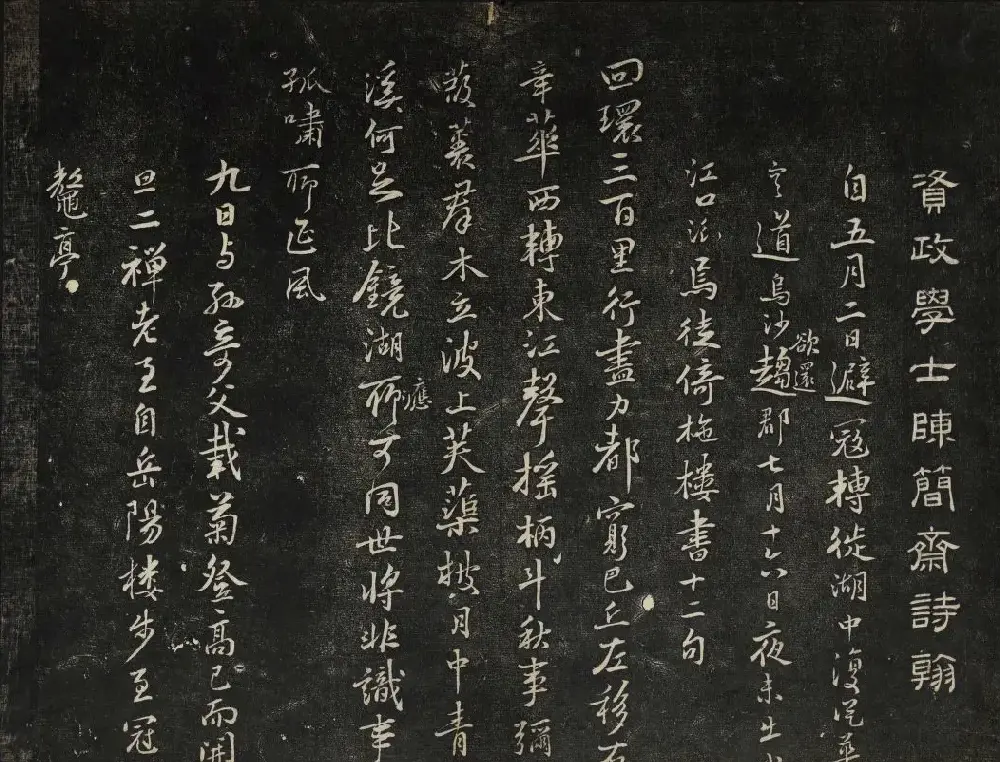 資政學士陳簡齋詩翰
自五月二日避寇轉徙湖中復從華
容道烏沙欲還趨郡七月十六日夜未出小
江口泒焉徒倚柂樓書十二句
回環三百里行盡力都窮巴丘左移右
章華西轉東江聲搖柄斗秋事彌
葭葵群木立波上芙蕖披月中青
溪何足比鏡湖聊可應同世將非識事
孤嘯聊延風
九日与孫竒父載菊登高已而開
旦二禅老至自岳陽楼步至冠
鼇亭